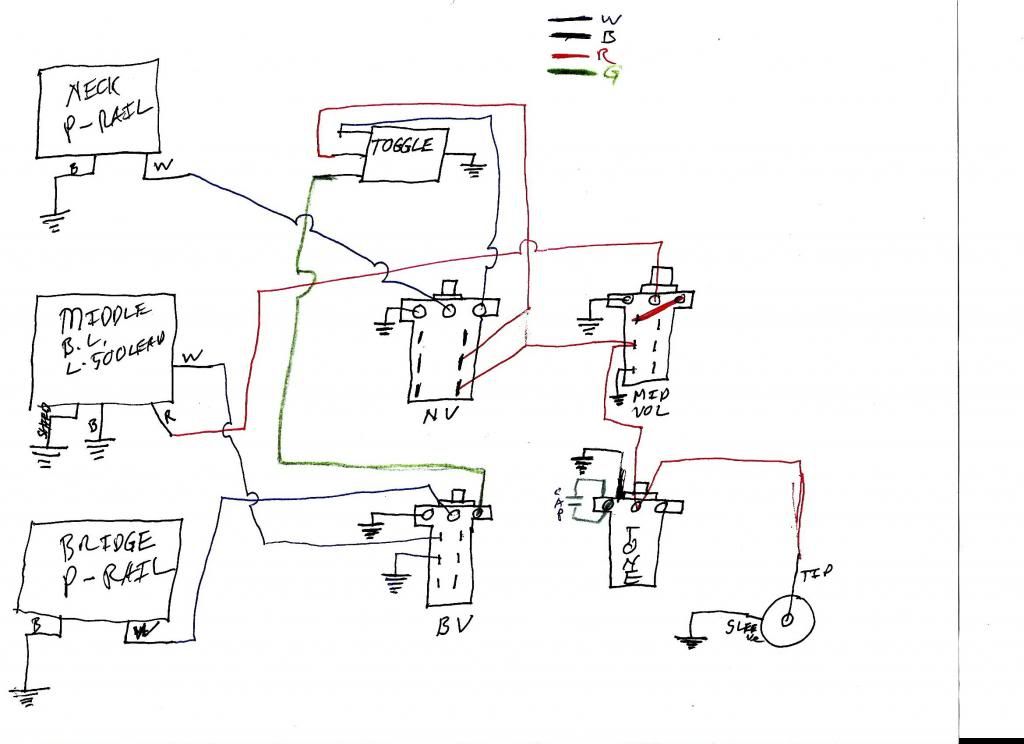 W
B
R
G
NECK
P-RAIL
B
W
TOGGLE
MIDDLE
B.L.
L-500LEAD
W
B
R
NV
MID
VOL
CAP
TONE
BRIDGE
P-RAIL
B
W
BV
TIP
SLEEVE